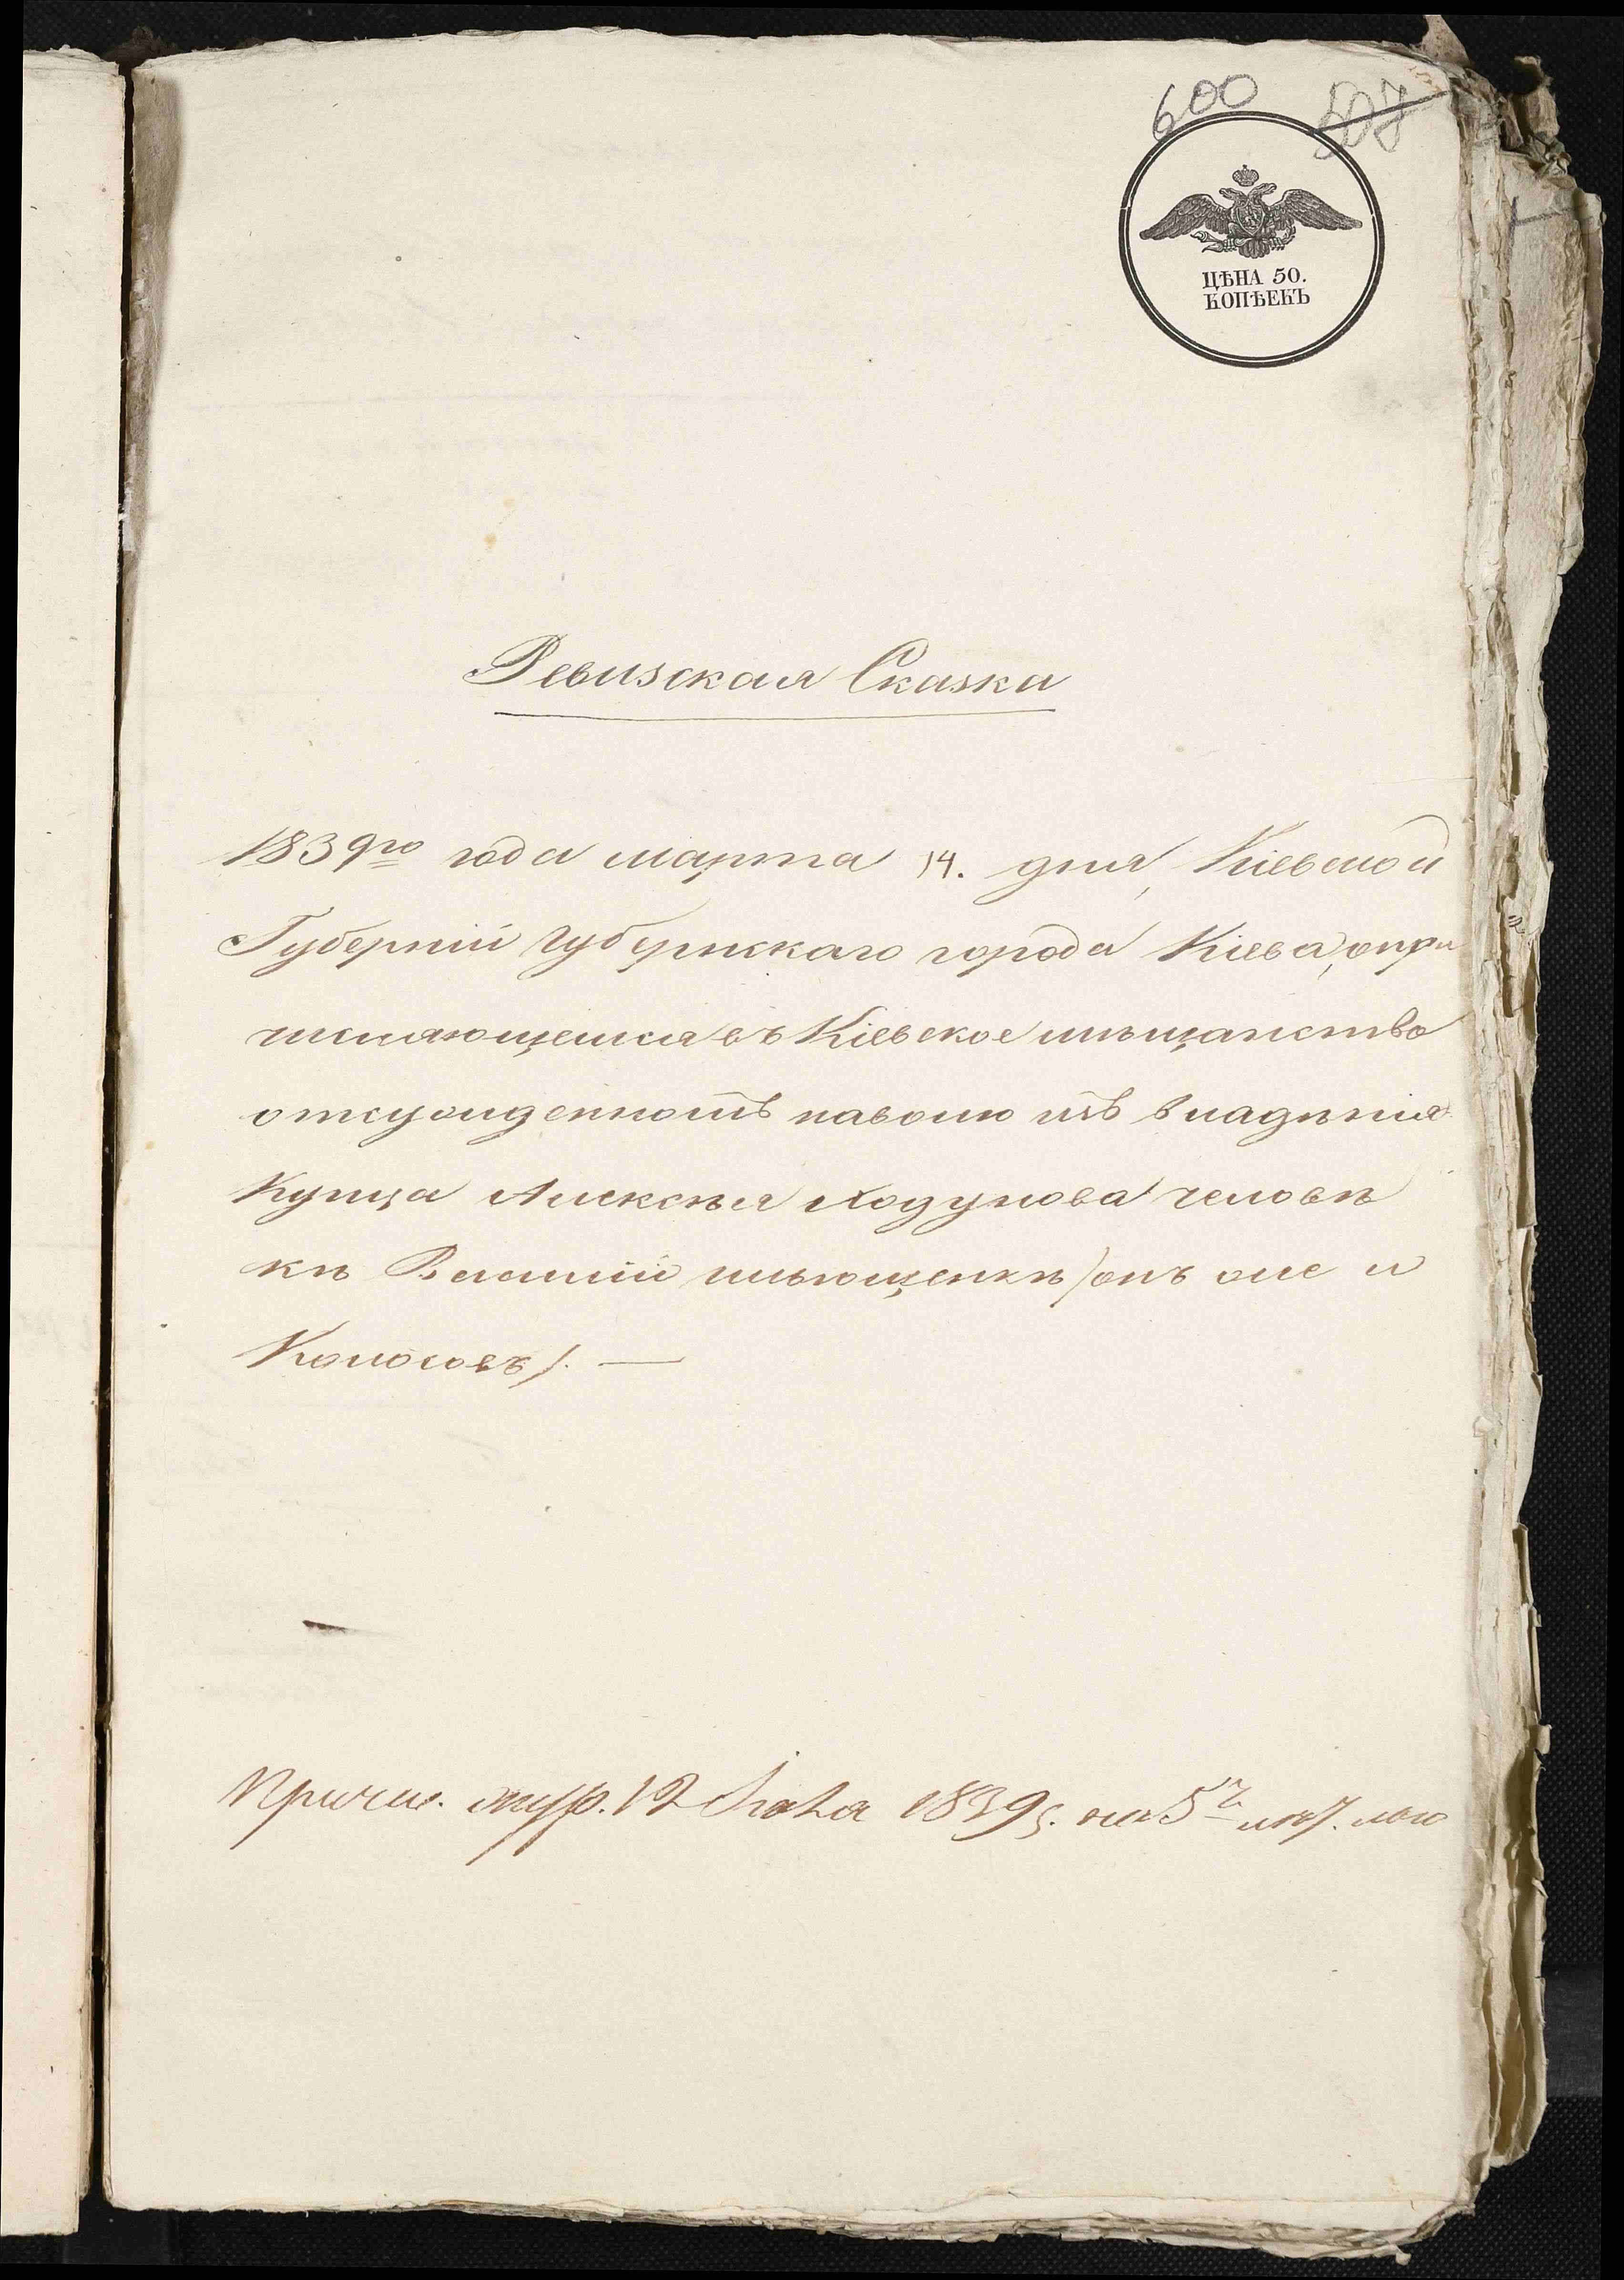 600 507
ЦѢНА 50.
КОПѢЕКЪ
Ревизская Сказка
1839го года марта 14. дня, Кіевской
Губерніи Губернскаго города Кіева, о при
числяющемся въ Кіевское мѣщанство
отсужденномъ наволю изъ владѣнія
Купца Алексѣя Ходунова человѣ
кѣ Василіи Ильющенкѣ /онъ же и
Колосовъ/. —
Причис. жур. 12 1839 г. на 5